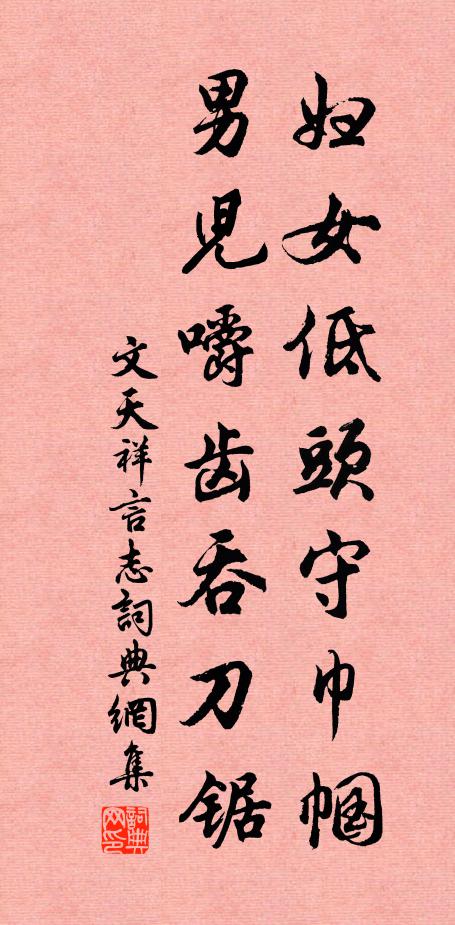 妇女低頭守巾帼
男児嚼齿吞刀锯
文天祥言志詞典網集
詞典网印